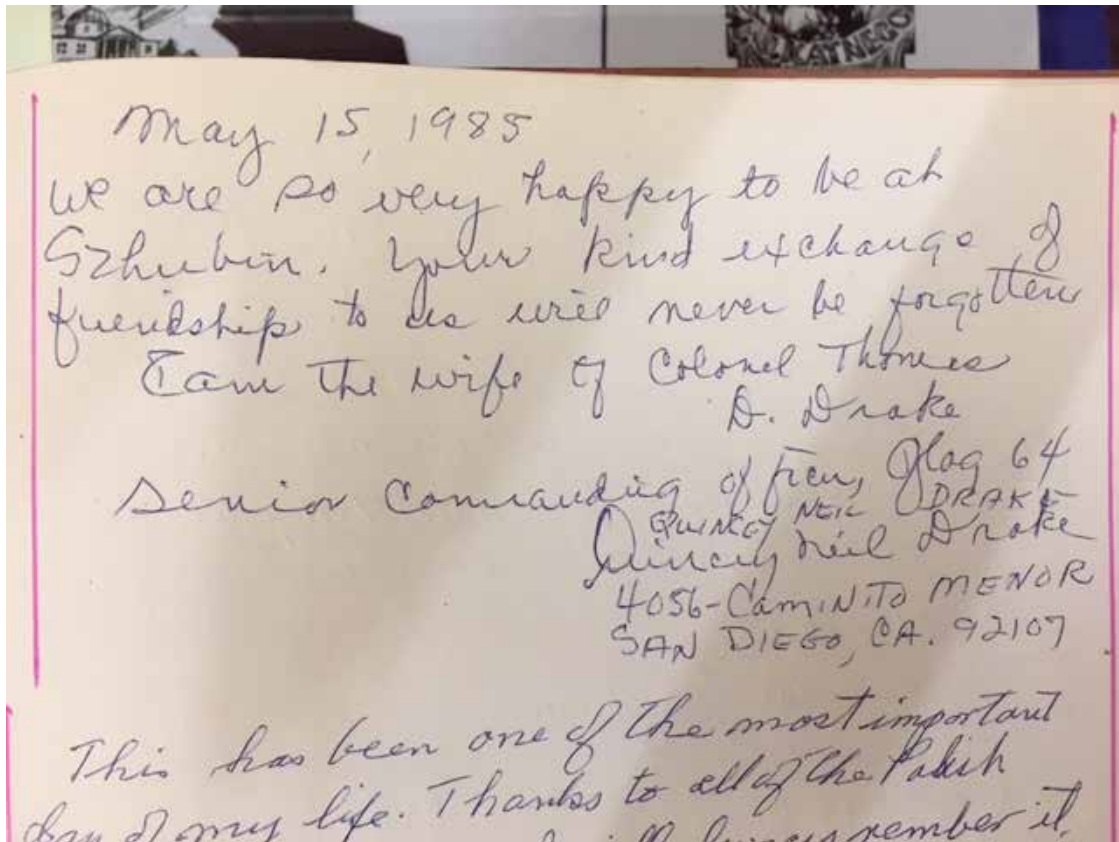 KATNEGO
May 15, 1985
we are so very happy to be at
Szhubin. Your kind exchange of
friendship to us will never be forgotten
I am the wife of Colonel Thomas
D. Drake
Senior Commanding officer, Oflag 64
QUINCY NEIL DRAKE
Quincy Neil Drake
4056-CAMINITO MENOR
SAN DIEGO, CA. 92107
This has been one of the most important
day of my life. Thanks to all of the Polish
remember it.